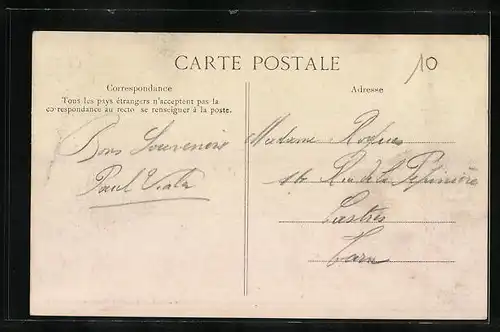 CARTE POSTALE
10
Correspondance
Tous les pays étrangers n'acceptent pas la
correspondance au recto se renseigner à la poste.
Adresse
Bons Souvenirs
Paul Viala
Madame Roques
16 Rue de la Pépinière
Castres
Tarn